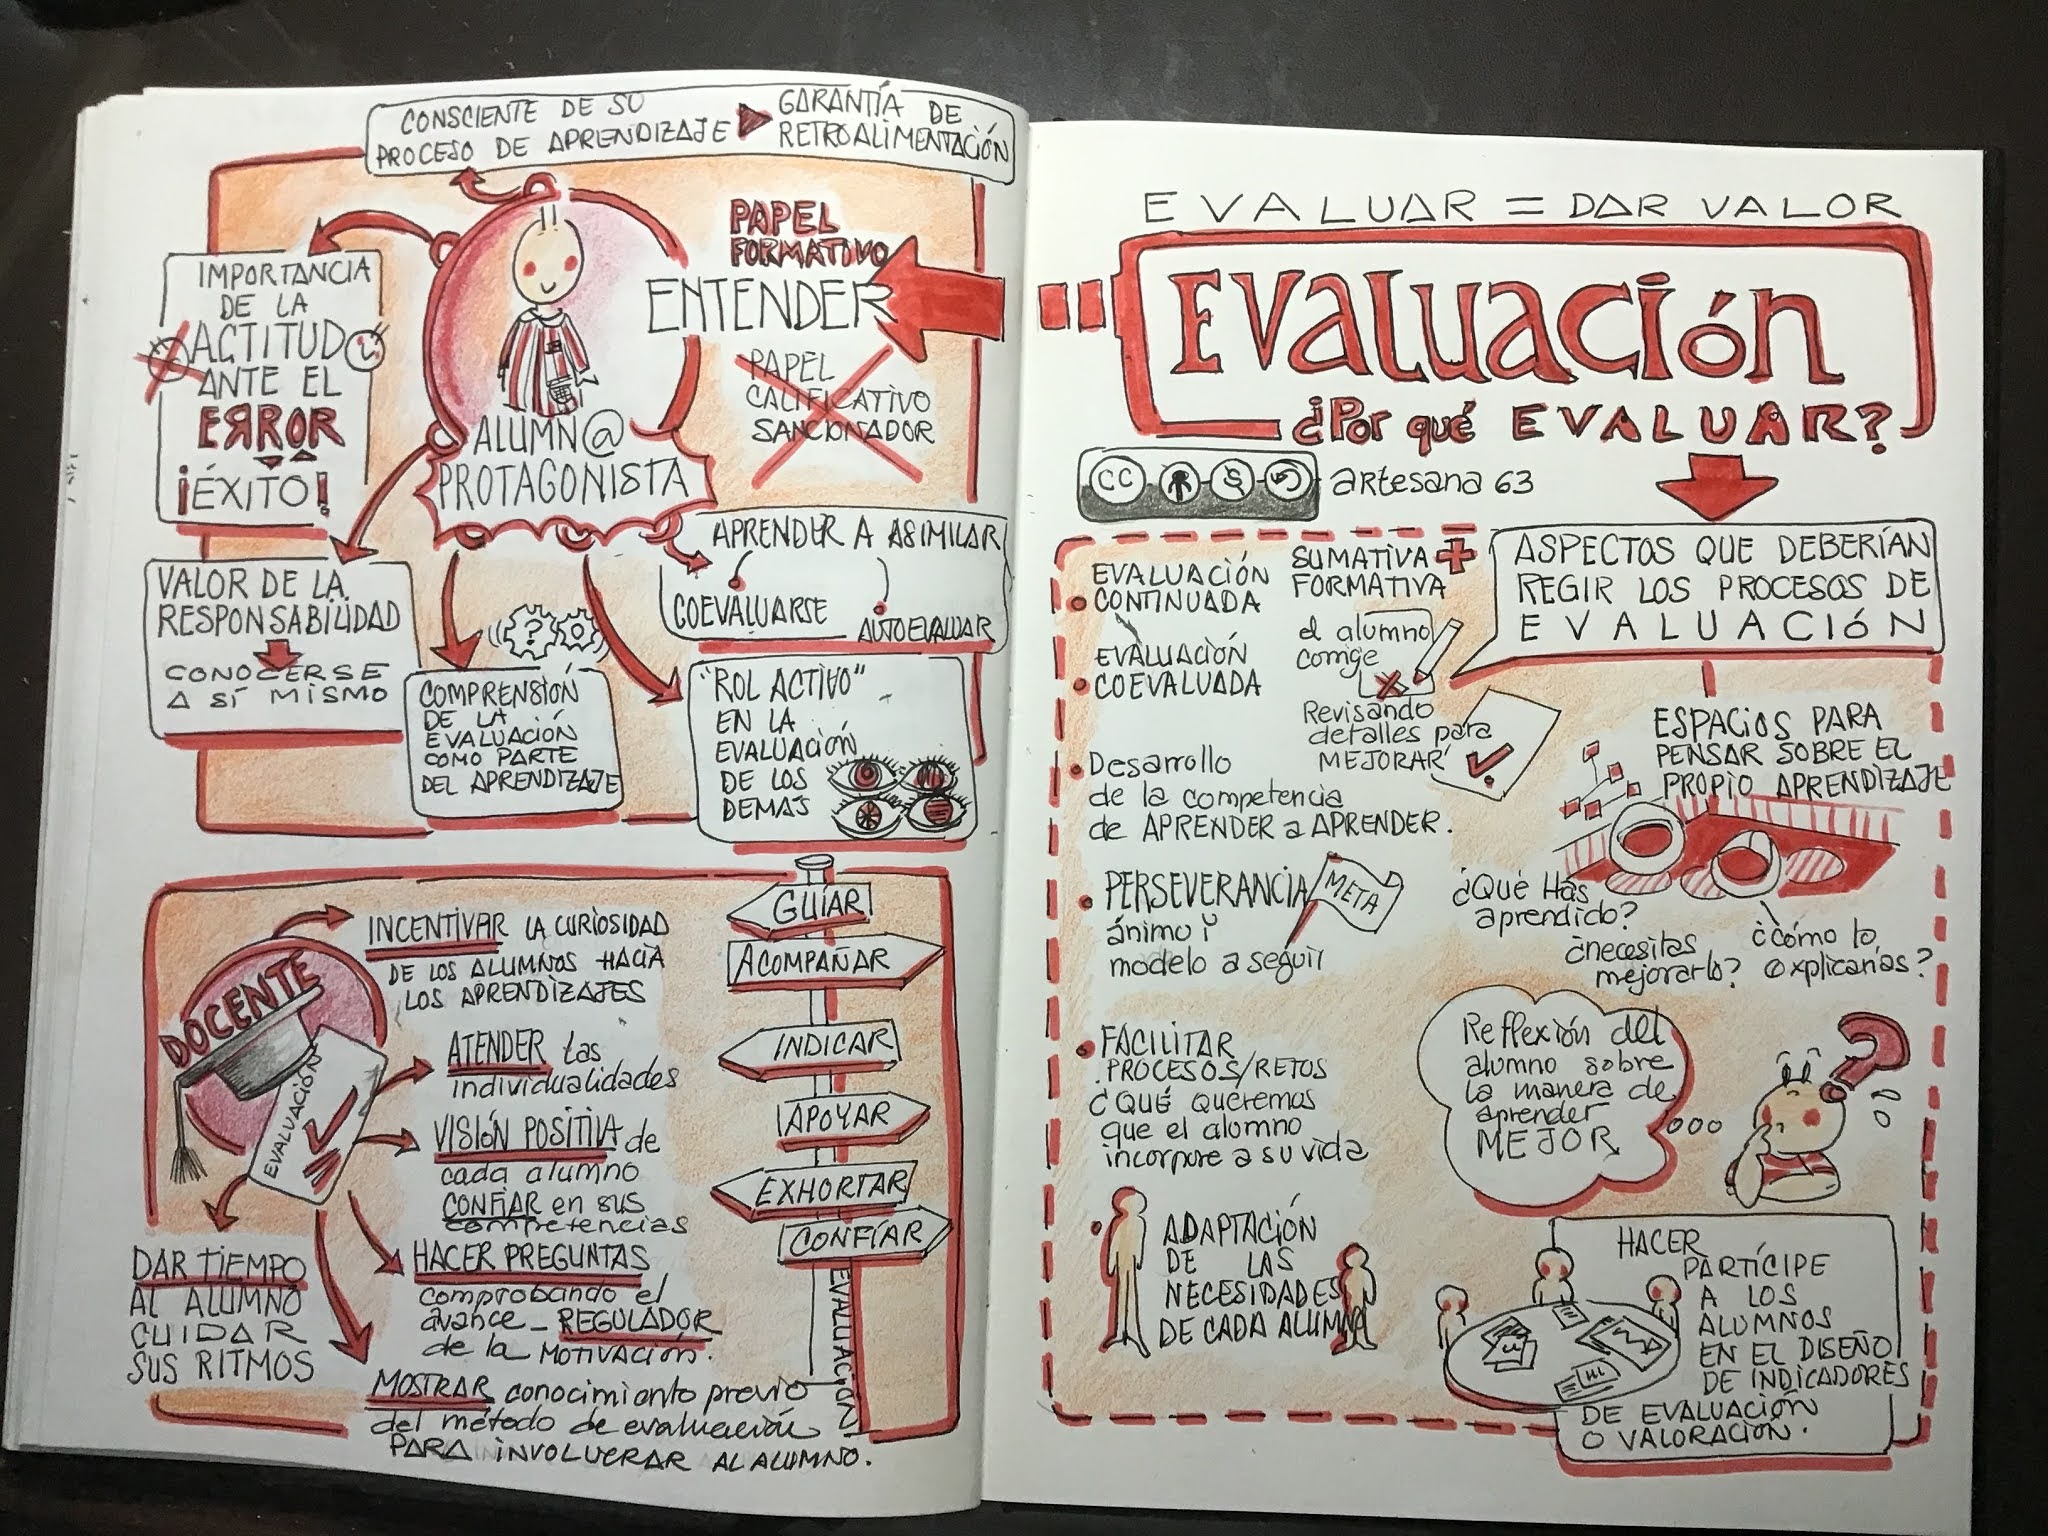 CONSCIENTE DE SU
PROCESO DE APRENDIZAJE
GARANTÍA DE
RETROALIMENTACIÓN
PAPEL
FORMATIVO
ENTENDER
PAPEL
CALIFICATIVO
SANCIONADOR
IMPORTANCIA
DE LA
ACTITUD
ANTE EL
ERROR
¡ÉXITO!
ALUMN@
PROTAGONISTA
VALOR DE LA
RESPONSABILIDAD
CONOCERSE
A SÍ MISMO
COMPRENSIÓN
DE LA
EVALUACIÓN
COMO PARTE
DEL APRENDIZAJE
?
APRENDER A ASIMILAR
COEVALUARSE
AUTOEVALUAR
"ROL ACTIVO"
EN LA
EVALUACIÓN
DE LOS
DEMAS
DOCENTE
EVALUACIÓN
INCENTIVAR LA CURIOSIDAD
DE LOS ALUMNOS HACIA
LOS APRENDIZAJES
ATENDER las
individualidades
VISIÓN POSITIVA de
cada alumno
CONFIAR en sus
competencias
HACER PREGUNTAS
comprobando el
avance_ REGULADOR
de la MOTIVACIÓN.
MOSTRAR conocimiento previo
del método de evaluación
PARA INVOLUCRAR AL ALUMNO.
DAR TIEMPO
AL ALUMNO
CUIDAR
SUS RITMOS
GUIAR
ACOMPAÑAR
INDICAR
APOYAR
EXHORTAR
CONFÍAR
EVALUACIÓN
EVALUAR = DAR VALOR
EVALUACIÓN
¿Por qué EVALUAR?
CC artesana 63
ASPECTOS QUE DEBERÍAN
REGIR LOS PROCESOS DE
EVALUACIÓN
EVALUACIÓN
CONTINUADA
SUMATIVA +
FORMATIVA
EVALUACIÓN
COEVALUADA
el alumno
corrige
Revisando
detalles para
MEJORAR
Desarrollo
de la competencia
de APRENDER a APRENDER.
PERSEVERANCIA
ánimo y
modelo a seguir
META
FACILITAR
PROCESOS/RETOS
¿QUÉ queremos
que el alumno
incorpore a su vida
ADAPTACIÓN
DE LAS
NECESIDADES
DE CADA ALUMNO
ESPACIOS PARA
PENSAR SOBRE EL
PROPIO APRENDIZAJE
¿Qué Has
aprendido?
¿necesitas
mejorarlo?
¿Cómo lo
explicarías?
Reflexión del
alumno sobre
la manera de
aprender
MEJOR
?
HACER
PARTÍCIPE
A LOS
ALUMNOS
EN EL DISEÑO
DE INDICADORES
DE EVALUACIÓN
O VALORACIÓN.